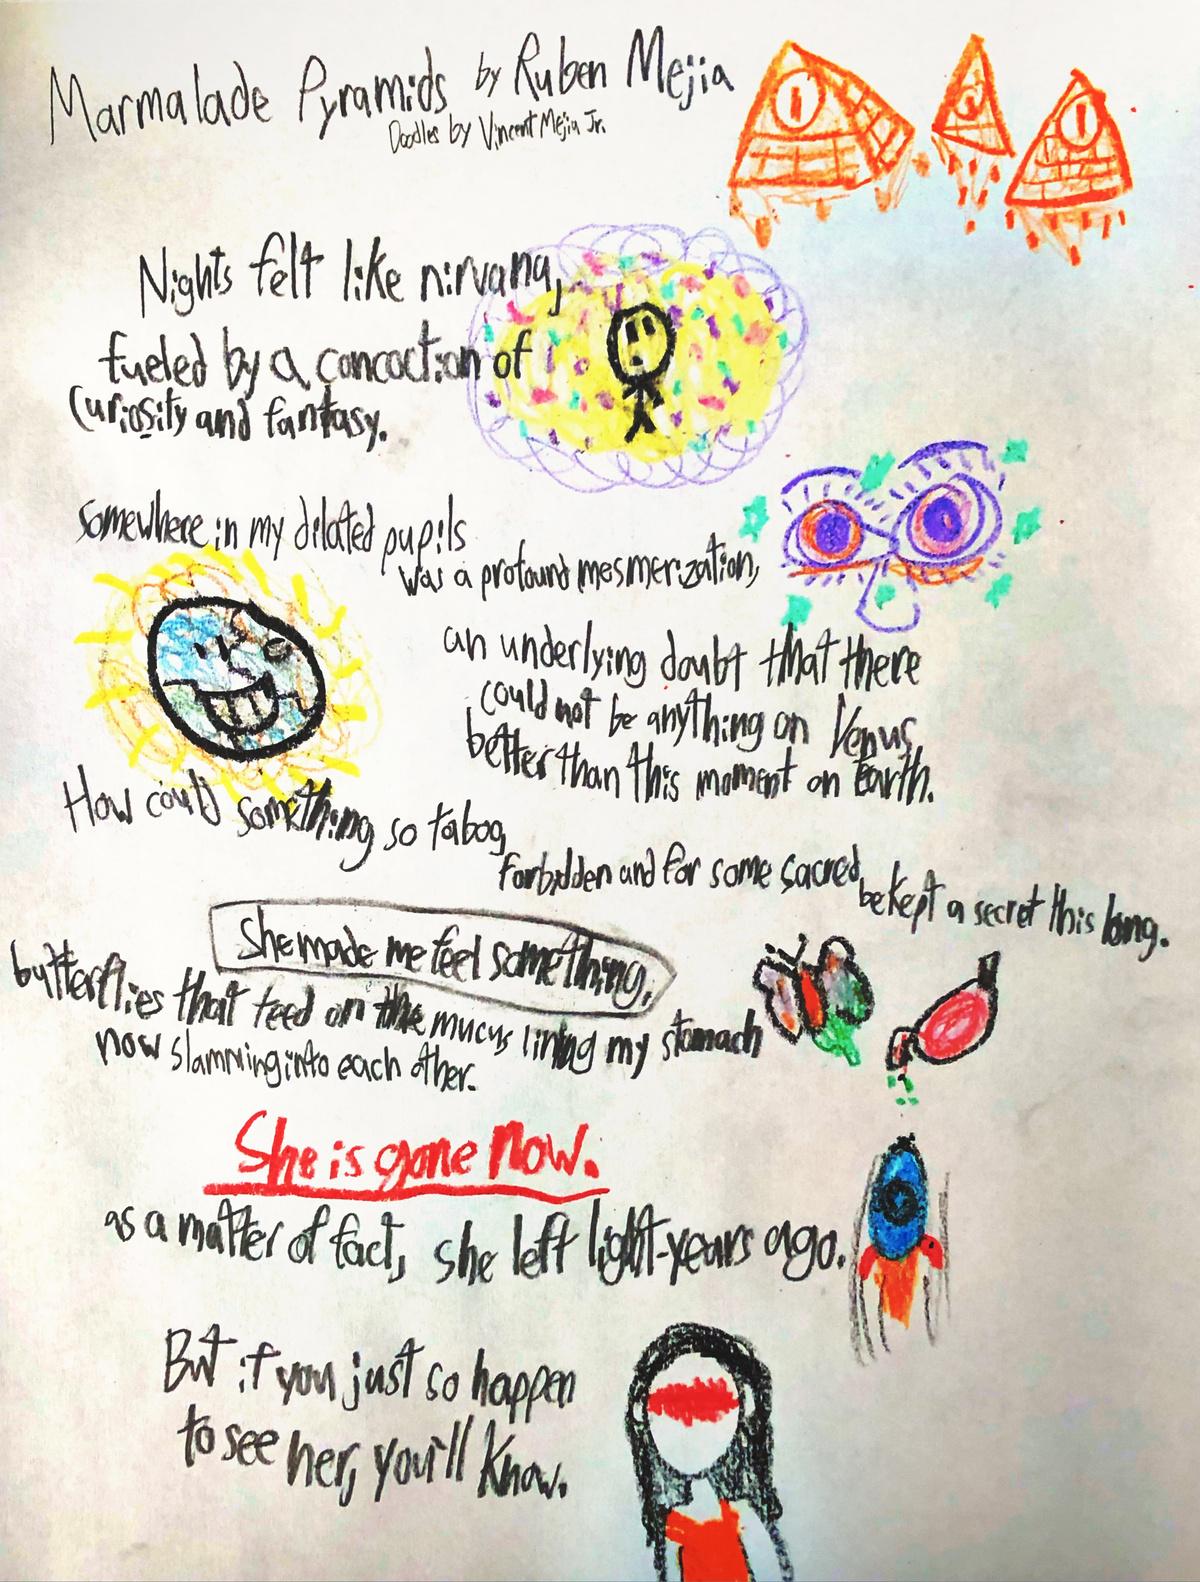 Marmalade Pyramids by Ruben Mejia
Doodles by Vincent Mejia Jr.
Nights felt like nirvana,
fueled by a concoction of
Curiosity and fantasy.
somewhere in my dilated pupils
was a profound mesmerization,
an underlying doubt that there
could not be anything on Venus
better than this moment on Earth.
How could something so taboo,
forbidden and for some sacred,
be kept a secret this long.
She made me feel something,
butterflies that feed on the mucus lining my stomach
now slamming into each other.
She is gone now.
as a matter of fact, she left light-years ago.
But if you just so happen
to see her, you'll know.